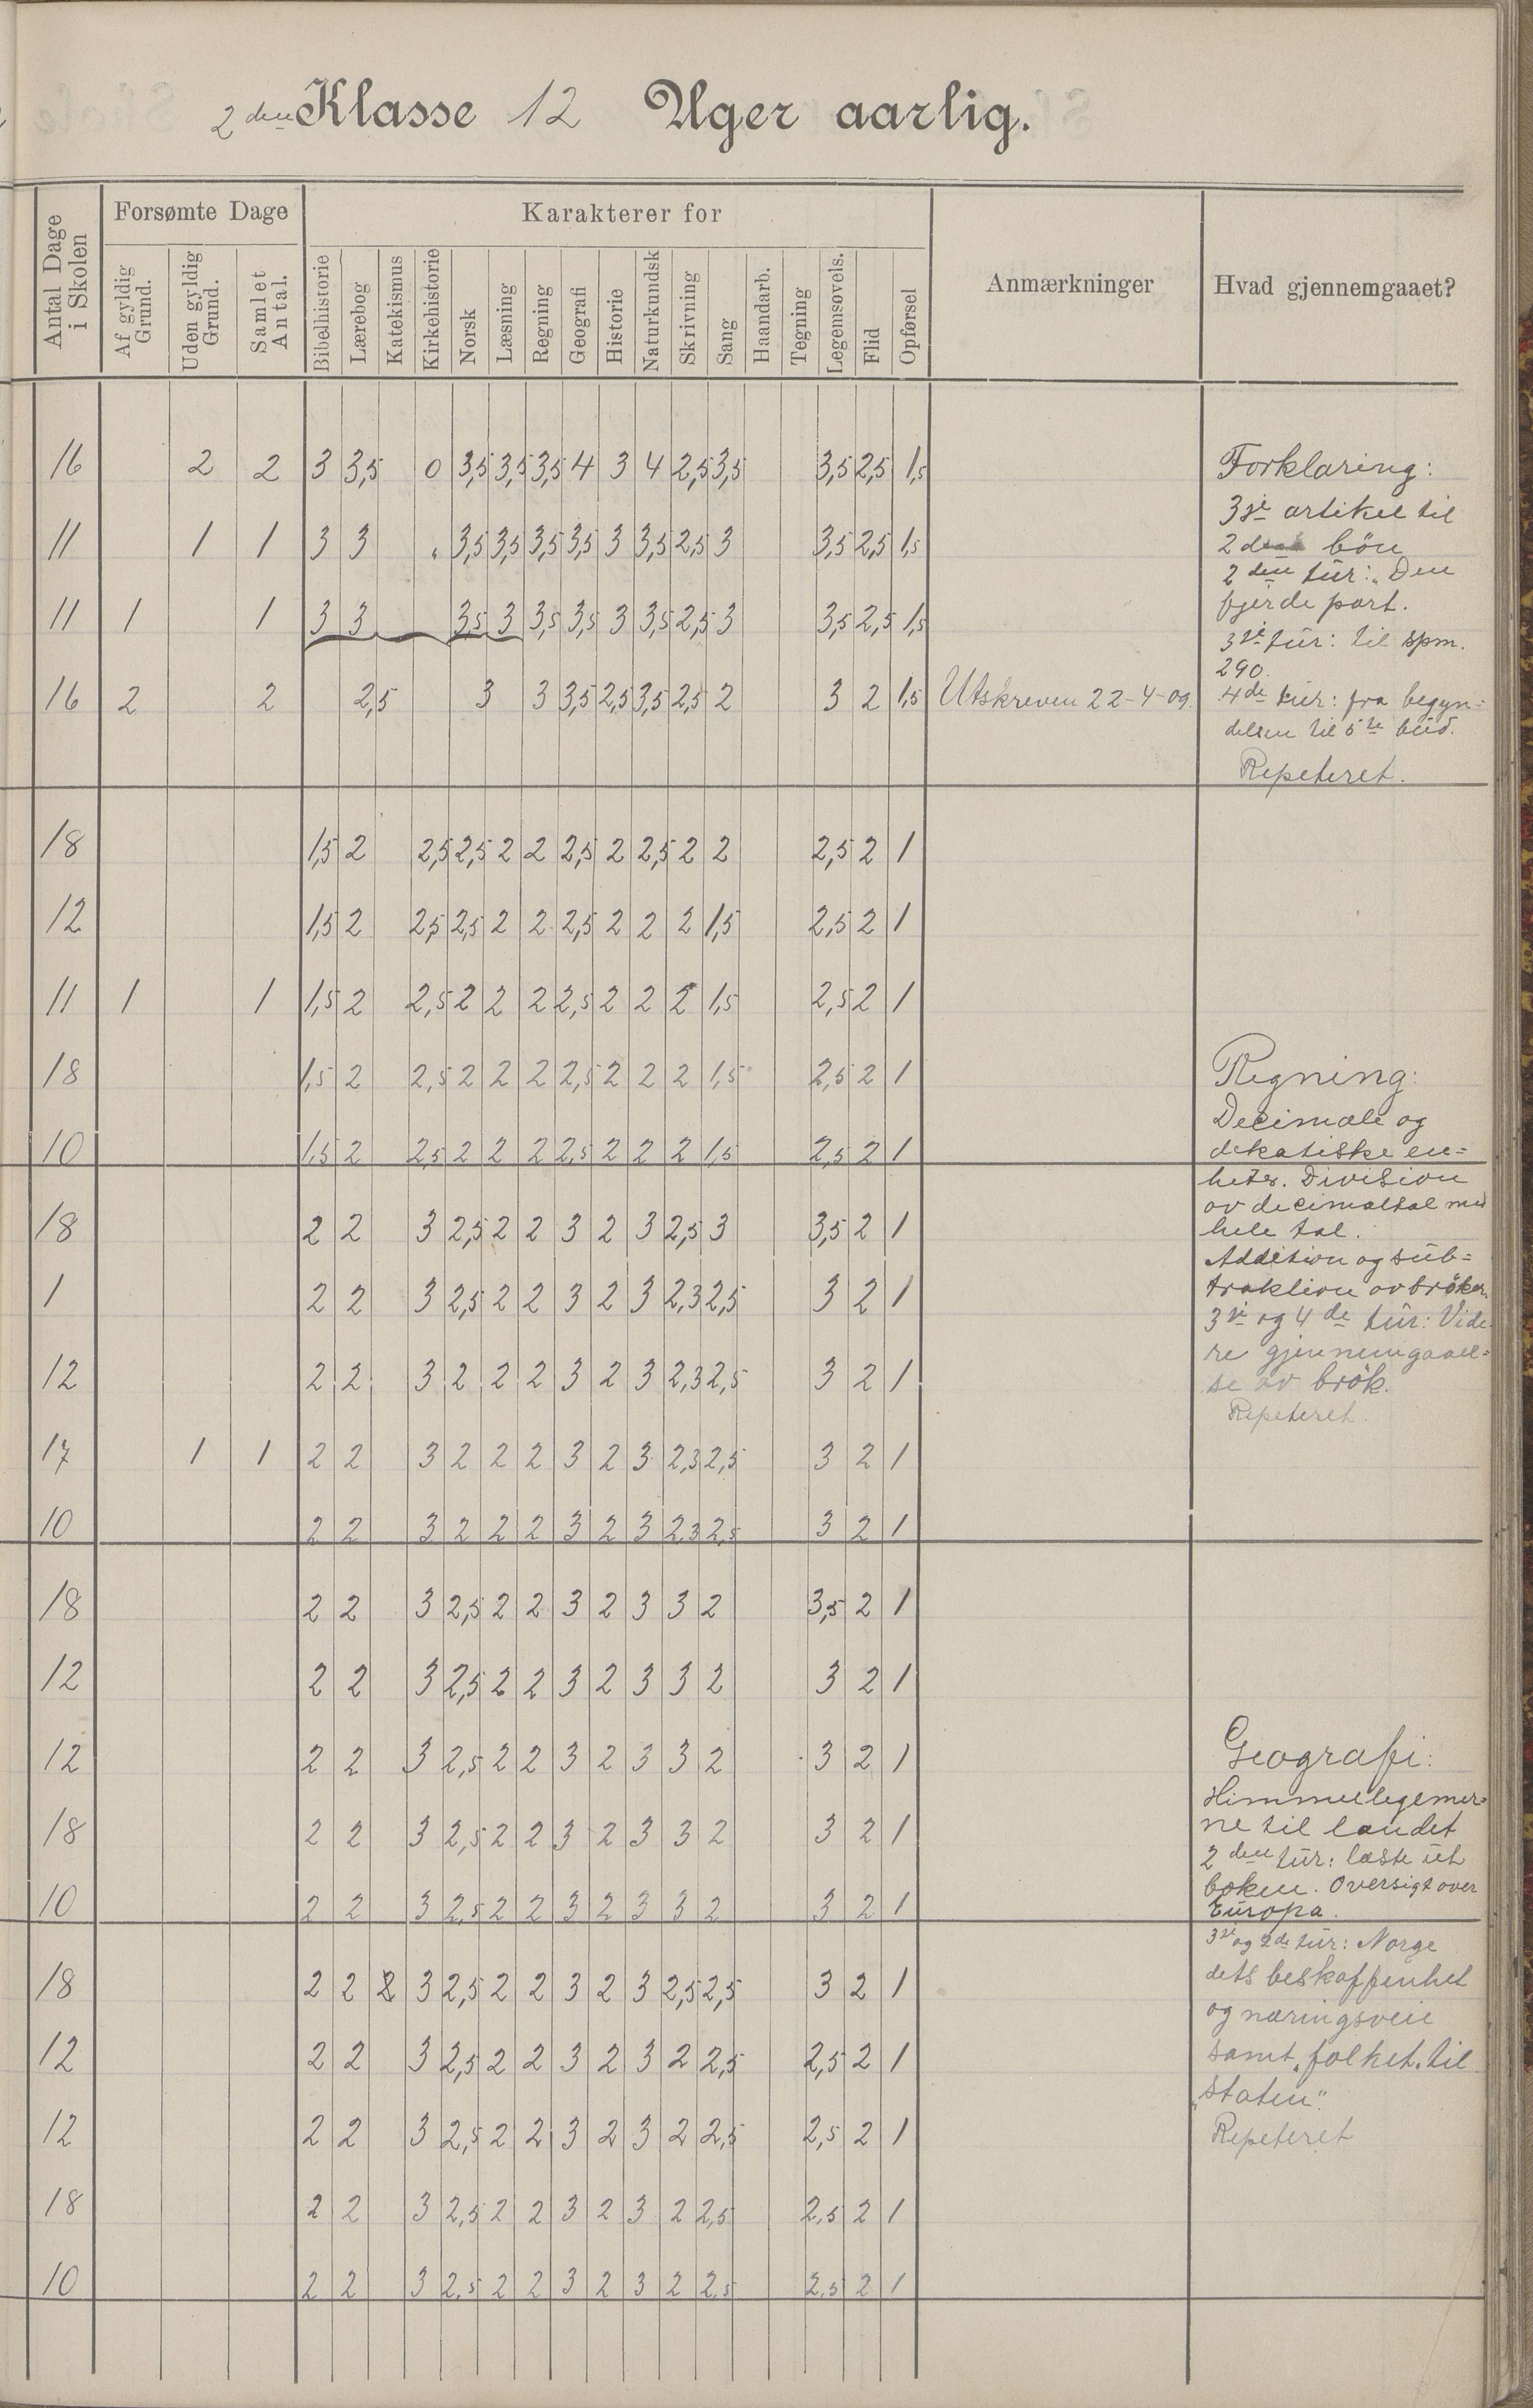 2den Klasse 12 Uger aarlig.
Antal Dage i Skolen | Forsømte Dage | Karakterer for | Anmærkninger | Hvad gjennemgaaet?
Af gyldig Grund. | Uden gyldig Grund. | Samlet Antal. | Bibelhistorie | Lærebog | Katekismus | Kirkehistorie | Norsk | Læsning | Regning | Geografi | Historie | Naturkundsk | Skrivning | Sang | Haandarb. | Tegning | Legemsøvels. | Flid | Opførsel
16 2 2 3 3,5 0 3,5 3,5 3,5 4 3 4 2,5 3,5 3,5 2,5 1,5
11 1 1 3 3 „ 3,5 3,5 3,5 3,5 3 3,5 2,5 3 3,5 2,5 1,5
11 1 1 3 3 3,5 3 3,5 3,5 3 3,5 2,5 3 3,5 2,5 1,5
16 2 2 2,5 3 3 3,5 2,5 3,5 2,5 2 3 2 1,5 Utskreven 22-4-09.
18 1,5 2 2,5 2,5 2 2 2,5 2 2,5 2 2 2,5 2 1
12 1,5 2 2,5 2,5 2 2 2,5 2 2 2 1,5 2,5 2 1
11 1 1 1,5 2 2,5 2 2 2 2,5 2 2 2 1,5 2,5 2 1
18 1,5 2 2,5 2 2 2 2,5 2 2 2 1,5 2,5 2 1
10 1,5 2 2,5 2 2 2 2,5 2 2 2 1,5 2,5 2 1
18 2 2 3 2,5 2 2 3 2 3 2,5 3 3,5 2 1
1 2 2 3 2,5 2 2 3 2 3 2,3 2,5 3 2 1
12 2 2 3 2 2 2 3 2 3 2,3 2,5 3 2 1
17 1 1 2 2 3 2 2 2 3 2 3 2,3 2,5 3 2 1
10 2 2 3 2 2 2 3 2 3 2,3 2,5 3 2 1
18 2 2 3 2,5 2 2 3 2 3 3 2 3,5 2 1
12 2 2 3 2,5 2 2 3 2 3 3 2 3 2 1
12 2 2 3 2,5 2 2 3 2 3 3 2 3 2 1
18 2 2 3 2,5 2 2 3 2 3 3 2 3 2 1
10 2 2 3 2,5 2 2 3 2 3 3 2 3 2 1
18 2 2 2 3 2,5 2 2 3 2 3 2,5 2,5 3 2 1
12 2 2 3 2,5 2 2 3 2 3 2 2,5 2,5 2 1
12 2 2 3 2,5 2 2 3 2 3 2 2,5 2,5 2 1
18 2 2 3 2,5 2 2 3 2 3 2 2,5 2,5 2 1
10 2 2 3 2,5 2 2 3 2 3 2 2,5 2,5 2 1
Forklaring:
3je artikel til
2den bön
2den tur: „Den
fjerde part.
3je tur: til spm.
290.
4de tur: fra begyn=
delsen til 5te bud.
Repeteret.
Regning:
Decimale og
dekatiske en=
heter. Division
av decimaltal med
hele tal.
Addition og sub=
traktion av bröker.
3je og 4de tur: Vide-
re gjennemgaael=
se av brök.
Repeteret.
Geografi:
Himmellegemer=
ne til landet
2den tur: læste ut
boken. Oversigt over
Europa.
3je og 4de tur: Norge
dets beskaffenhet
og næringsveie
samt „folket„ til
„Staten“.
Repeteret